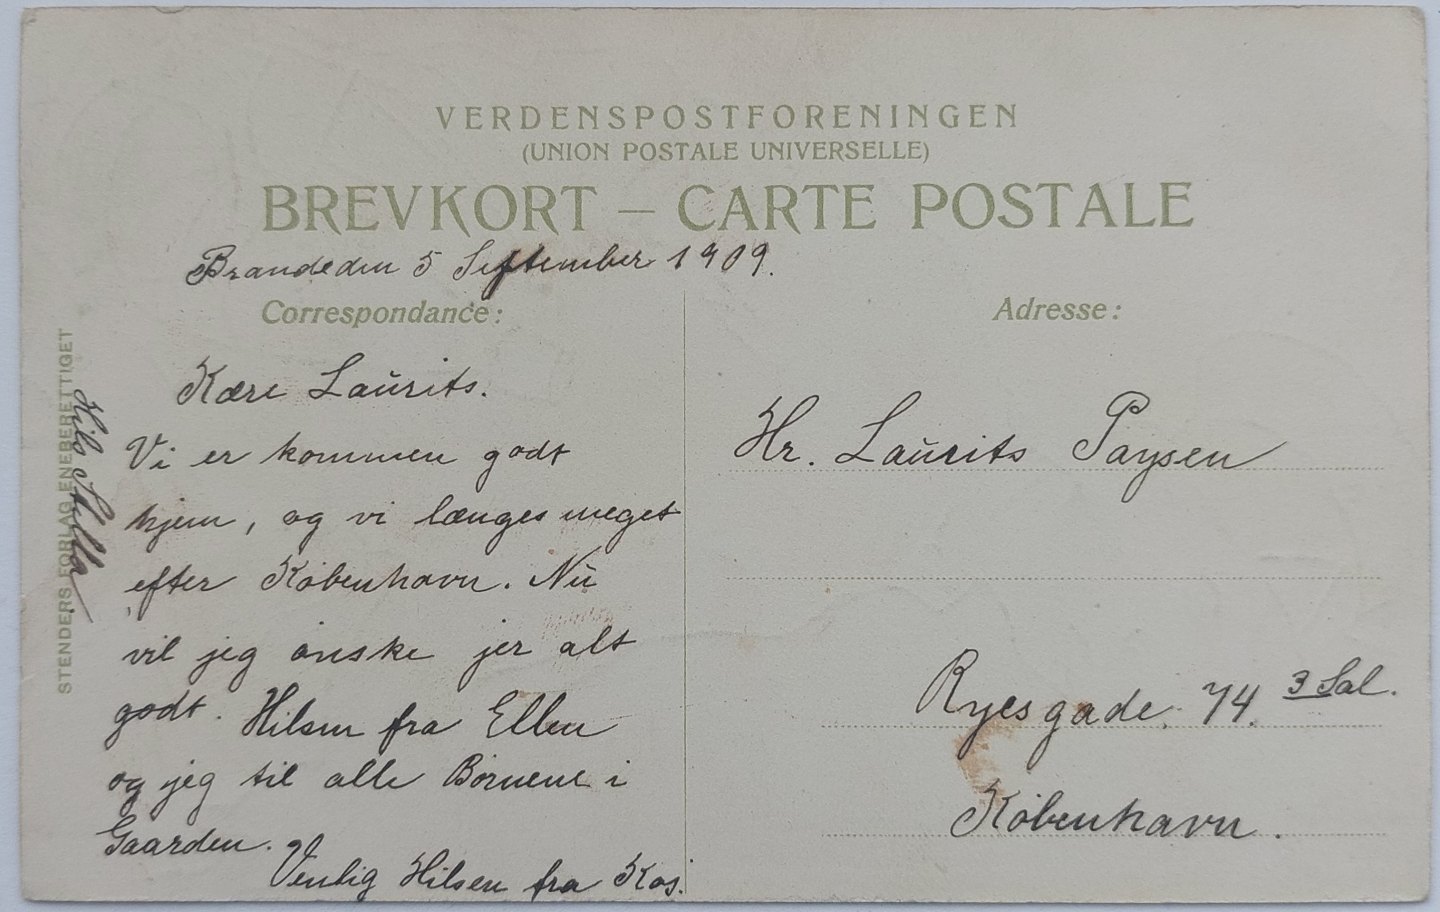 VERDENSPOSTFORENINGEN
(UNION POSTALE UNIVERSELLE)
BREVKORT — CARTE POSTALE
Brande den 5 September 1909.
Correspondance:
Kære Laurits.
Vi er kommen godt
hjem, og vi længes meget
efter København. Nu
vil jeg ønske jer alt
godt. Hilsen fra Ellen
og jeg til alle Børnene i
Gaarden.
Venlig Hilsen fra Kaj.
Hils Stilla
STENDERS FORLAG ENEBERETTIGET
Adresse:
Hr. Laurits Paysen
Ryesgade 74. 3 Sal.
København.